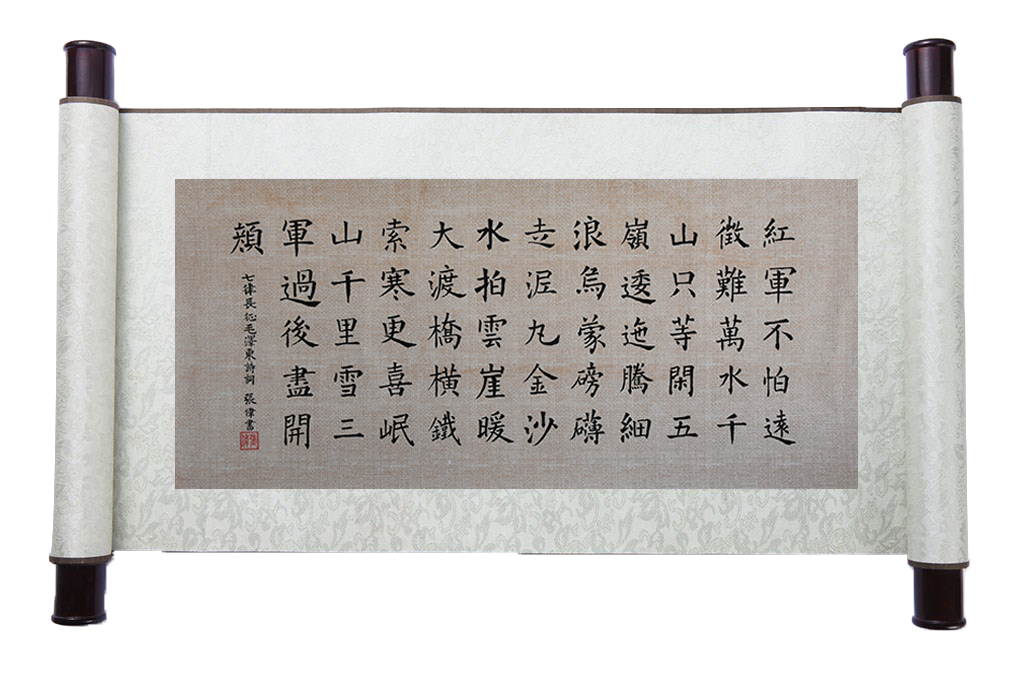 紅軍不怕遠
徵難萬水千
山只等閑五
嶺逶迤騰細
浪烏蒙磅礴
走泥丸金沙
水拍雲崖暖
大渡橋橫鐵
索寒更喜岷
山千里雪三
軍過後盡開
顏
七律長征毛澤東詩詞 張偉書